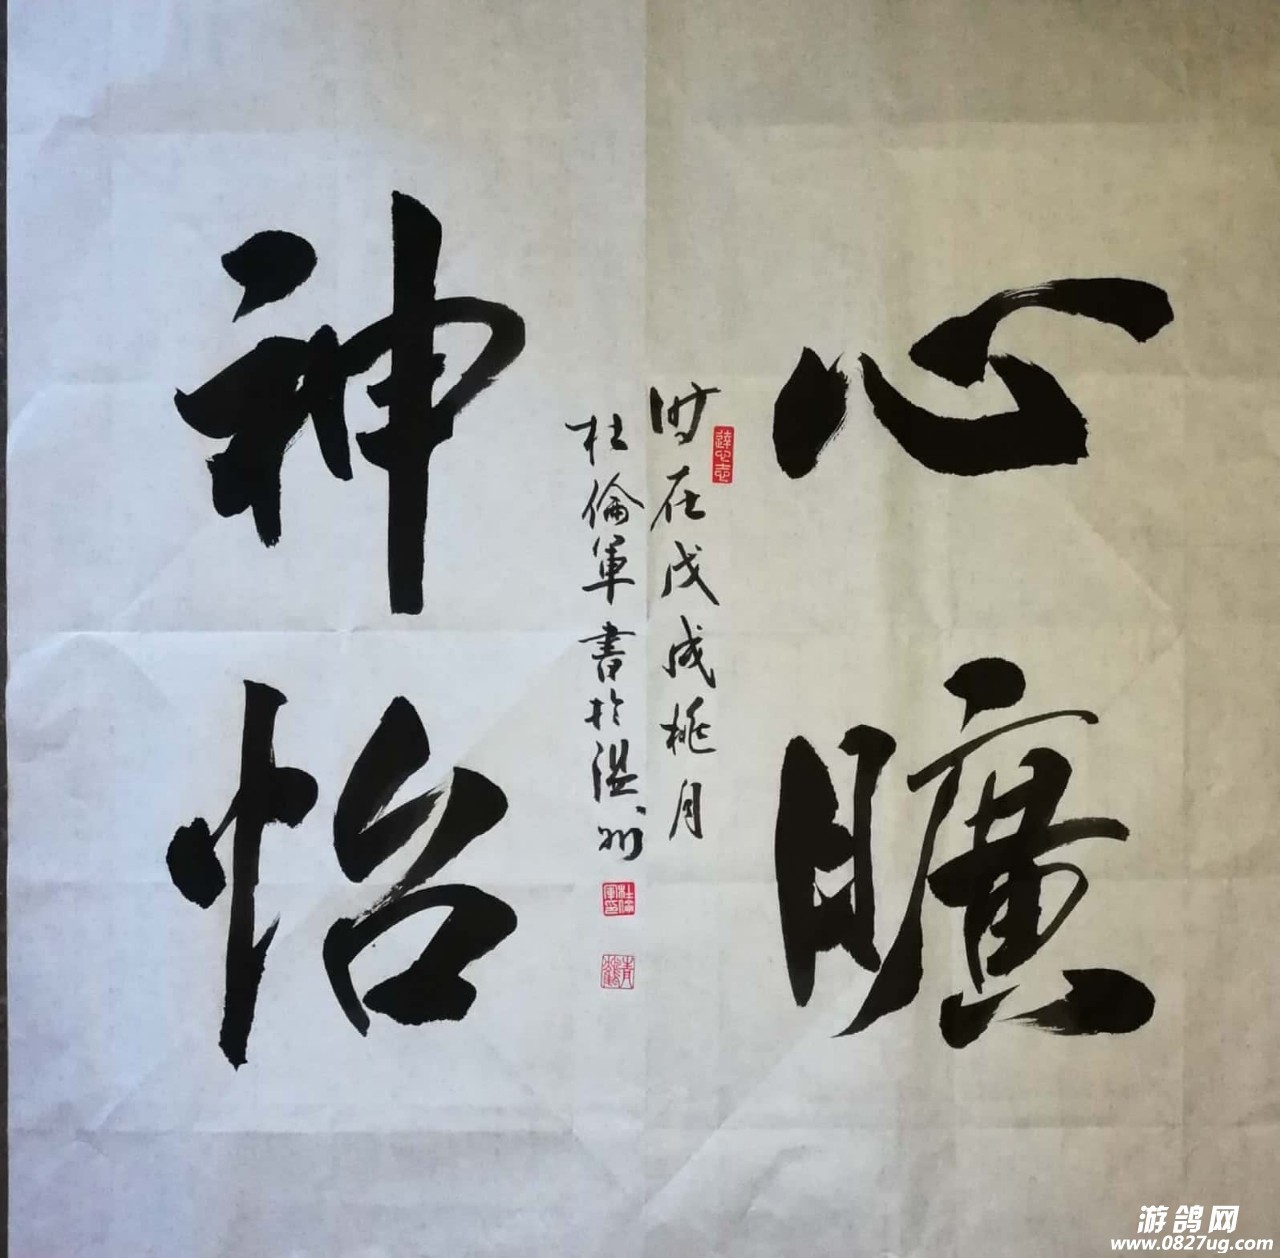 心曠
神怡
时在戊戌桃月
杜倫軍書於温州
游鸽网
www.0827ug.com